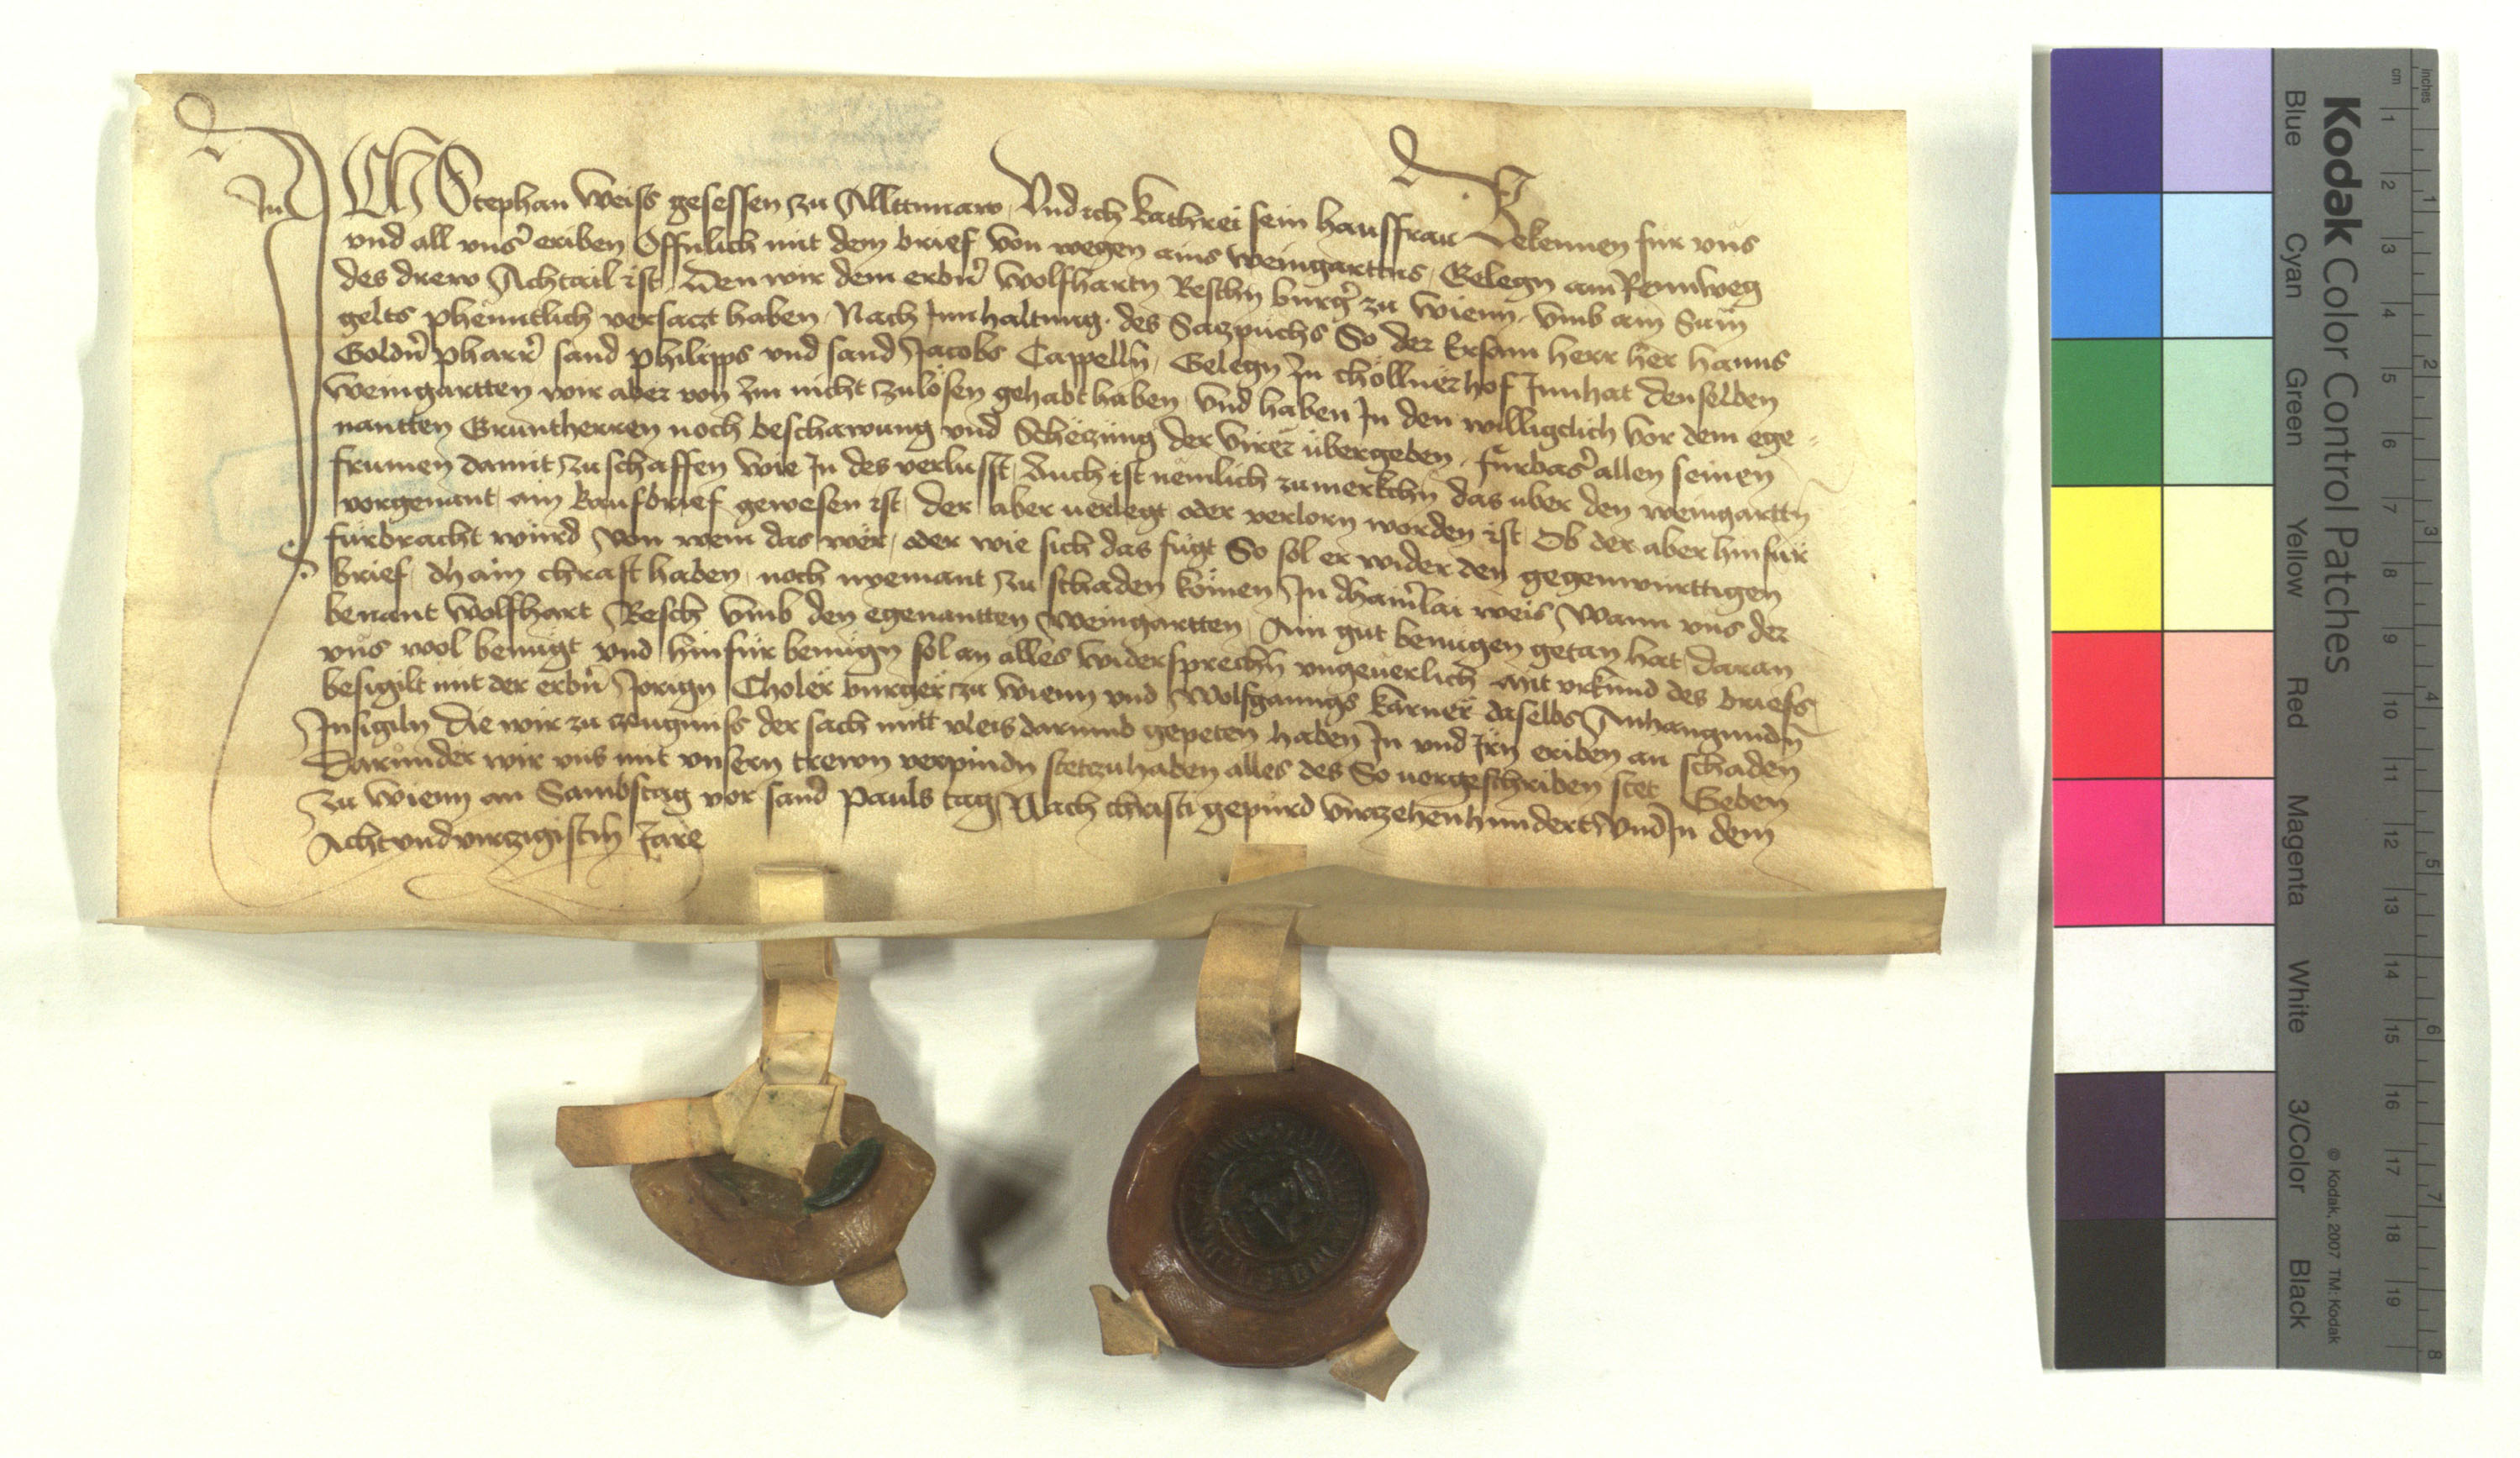 ICH Stephan Weiss gesessen zu Allttunaw Und ich kathrei sein hausfrau Bekennen fur uns
und all uns' eriben Offnlich mit dem brief Von wegen ains weingarttns Gelegn am Rennweg
des drew Achtail ist Den wir dem erbn̄ Wolfhartn Reschn burg' zu Wienn umb ain Sum̄
gelts phenntlich versaczt haben Nach Innhaltung des Saczpuchs So der Ersam herr her hanns
Goldn̄ pharr' sand philipps und sand Jacobs Cappelln Gelegn In chöllnerhof Innhat denselben
weingartten wir aber von im nicht zulösen gehabt haben Und haben In den willigclich vor dem ege-
nantten Gruntherren noch beschawung und Scheczung der Virer übergeben furbas allen seinen
frumen damit zuschaffen wie In des verlusst Auch ist nemlich zumerkchn das uber den weingarttn
vorgenant ain kaufbrief gewesen ist der aber verlegt oder verlorn worden ist Ob der aber hinfur
fürbracht würd Von wem das wer oder wie sich das fügt So sol er wider den gegenwürttigen
brief dhain chraft haben noch nyemant zu schaden kömen In dhain'lai weis Wann uns der
benant Wolfhart Resch umb den egenantten Weingartten Ain gut benügen getan hat daran
uns wol benügt und hinfür benügn sol an alles widersprechn̄ ungeuerlich Mit urkund des briefs
besigilt mit der erbn̄ Jorign Choler burger zu Wienn und Wolfganngs karner daselbs Anhangundn̄
Insigiln Die wir zu czeugnuss der sach mitt vleis darumb gepeten haben In und Irn eriben an schaden
Darunder wir uns mit unsern trewn verpindn stetzuhaben alles des So vorgeschriben stet Geben
zu Wienn an Sambstag vor sand Pauls tag Nach christi gepürd virczehenhundert und In dem
Achtundvirczigistn̄ Jare
Kodak Color Control Patches
Blue Cyan Green Yellow Red Magenta White 3/Color Black
© Kodak, 2007 TM: Kodak
cm 1 2 3 4 5 6 7 8 9 10 11 12 13 14 15 16 17 18 19
inches 1 2 3 4 5 6 7 8